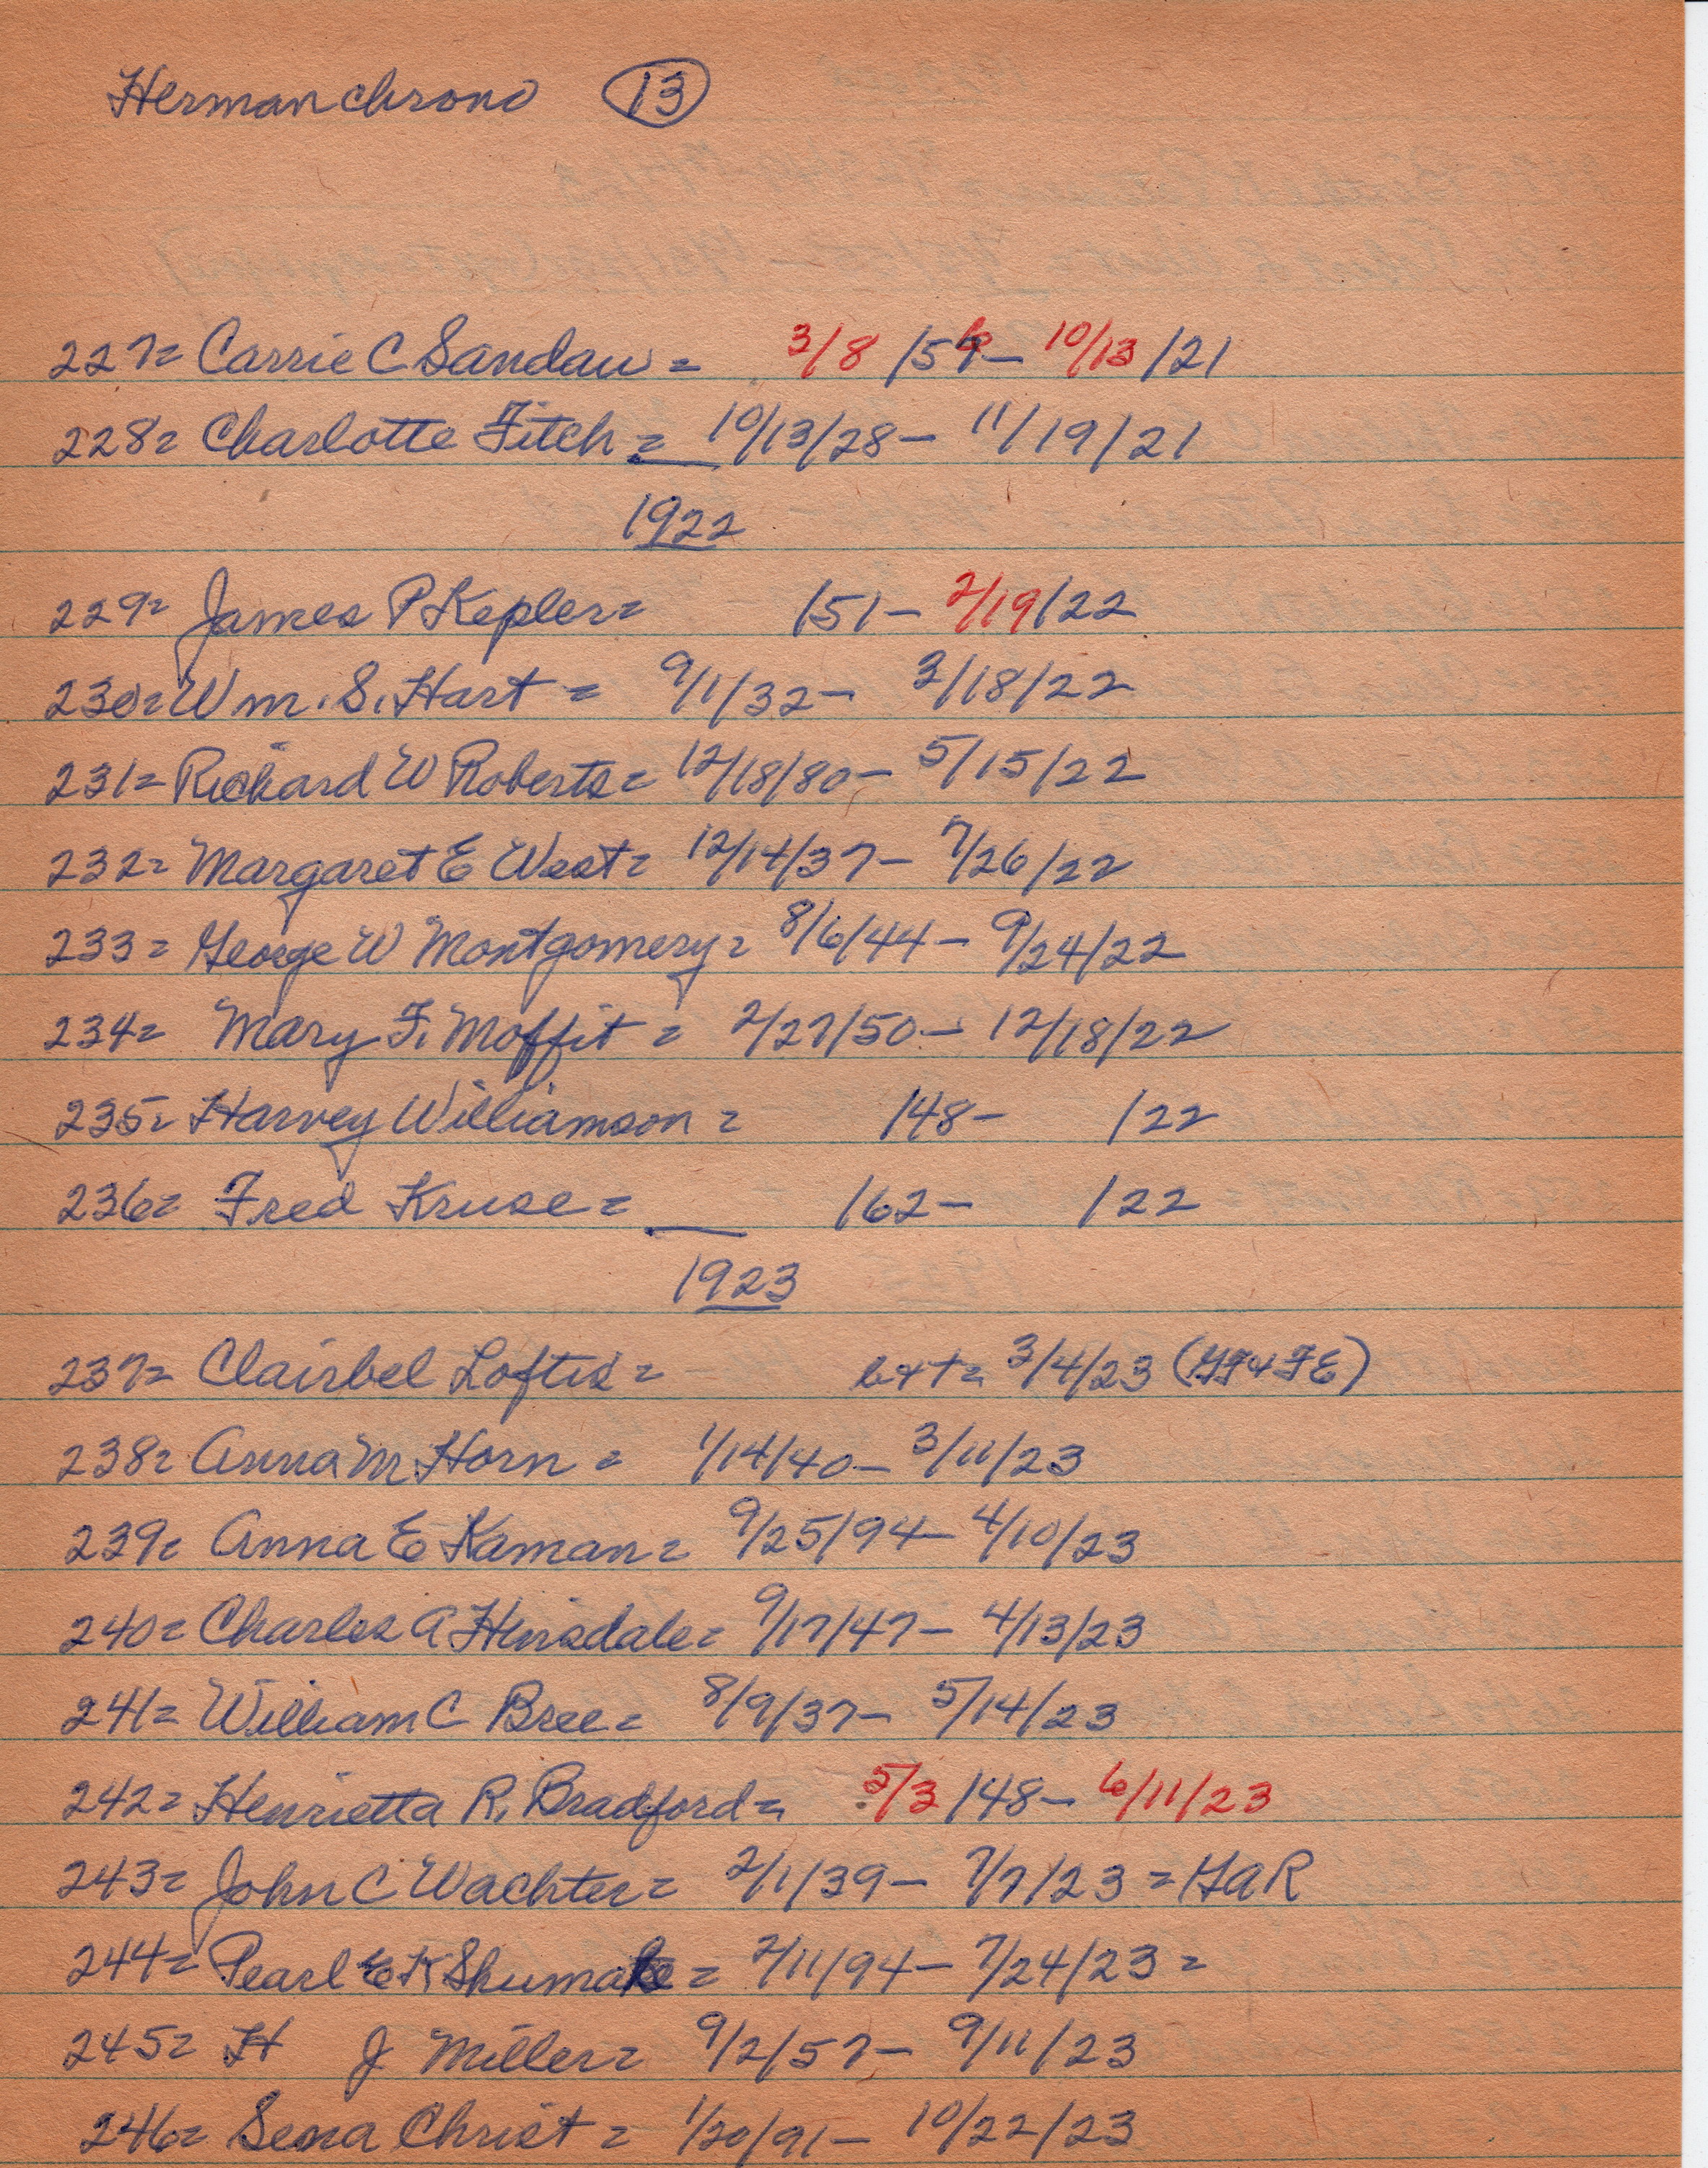 Herman chrono 13
227= Carrie C Sandau = 3/8 /56- 10/13 /21
228= Charlotte Fitch = 10/13/28- 11/19/21
1922
229= James P Kepler= /51- 2/19/22
230= Wm. S. Hart = 9/1/32- 3/18/22
231= Richard W Roberts= 12/18/80- 5/15/22
232= Margaret E West= 12/14/37- 7/26/22
233= George W Montgomery= 8/6/44- 9/24/22
234= Mary F. Moffit = 2/27/50- 12/18/22
235= Harvey Williamson = /48- /22
236= Fred Kruse= /62- /22
1923
237= Clairbel Loftis= bxt= 3/4/23 (GF4FE)
238= Anna M Horn = 1/14/40- 3/11/23
239= Anna E Kaman= 9/25/94- 4/10/23
240= Charles A Hinsdale= 9/17/47- 4/13/23
241= William C Bree= 8/9/37- 5/14/23
242= Henrietta R. Bradford= 5/3 /48- 6/11/23
243= John C Wachter= 2/1/39- 7/7/23 = GAR
244= Pearl E K Shumake = 2/11/94- 7/24/23 =
245= H J Miller= 9/2/57- 9/11/23
246= Sena Christ = 1/20/91- 10/22/23